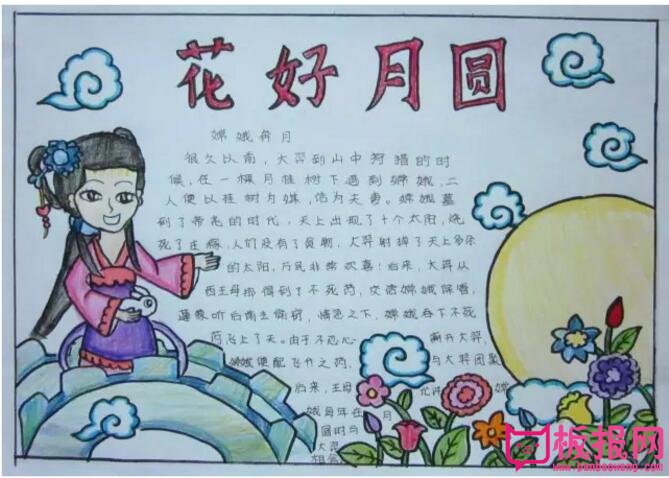 花好月圆
嫦娥奔月
很久以前，大羿到山中狩猎的时
候，在一棵月桂树下遇到嫦娥，二
人便以桂树为媒，结为夫妻。嫦娥
到了帝尧的时代，天上出现了十个太阳，烧
死了庄稼，人们没有了食物，大羿射掉了天上多余
的太阳，万民非常欢喜！后来，大羿从
西王母那得到了不死药，交给嫦娥保管，
蓬蒙听后前去偷窃，情急之下，嫦娥吞下不死
药飞上了天。由于不忍心 离开大羿，
嫦娥 飞升之药， 与大羿团聚
后来，王母 允许 嫦
娥每年在 月
圆时与
大羿
相会
板报网
www.banbaowang.com